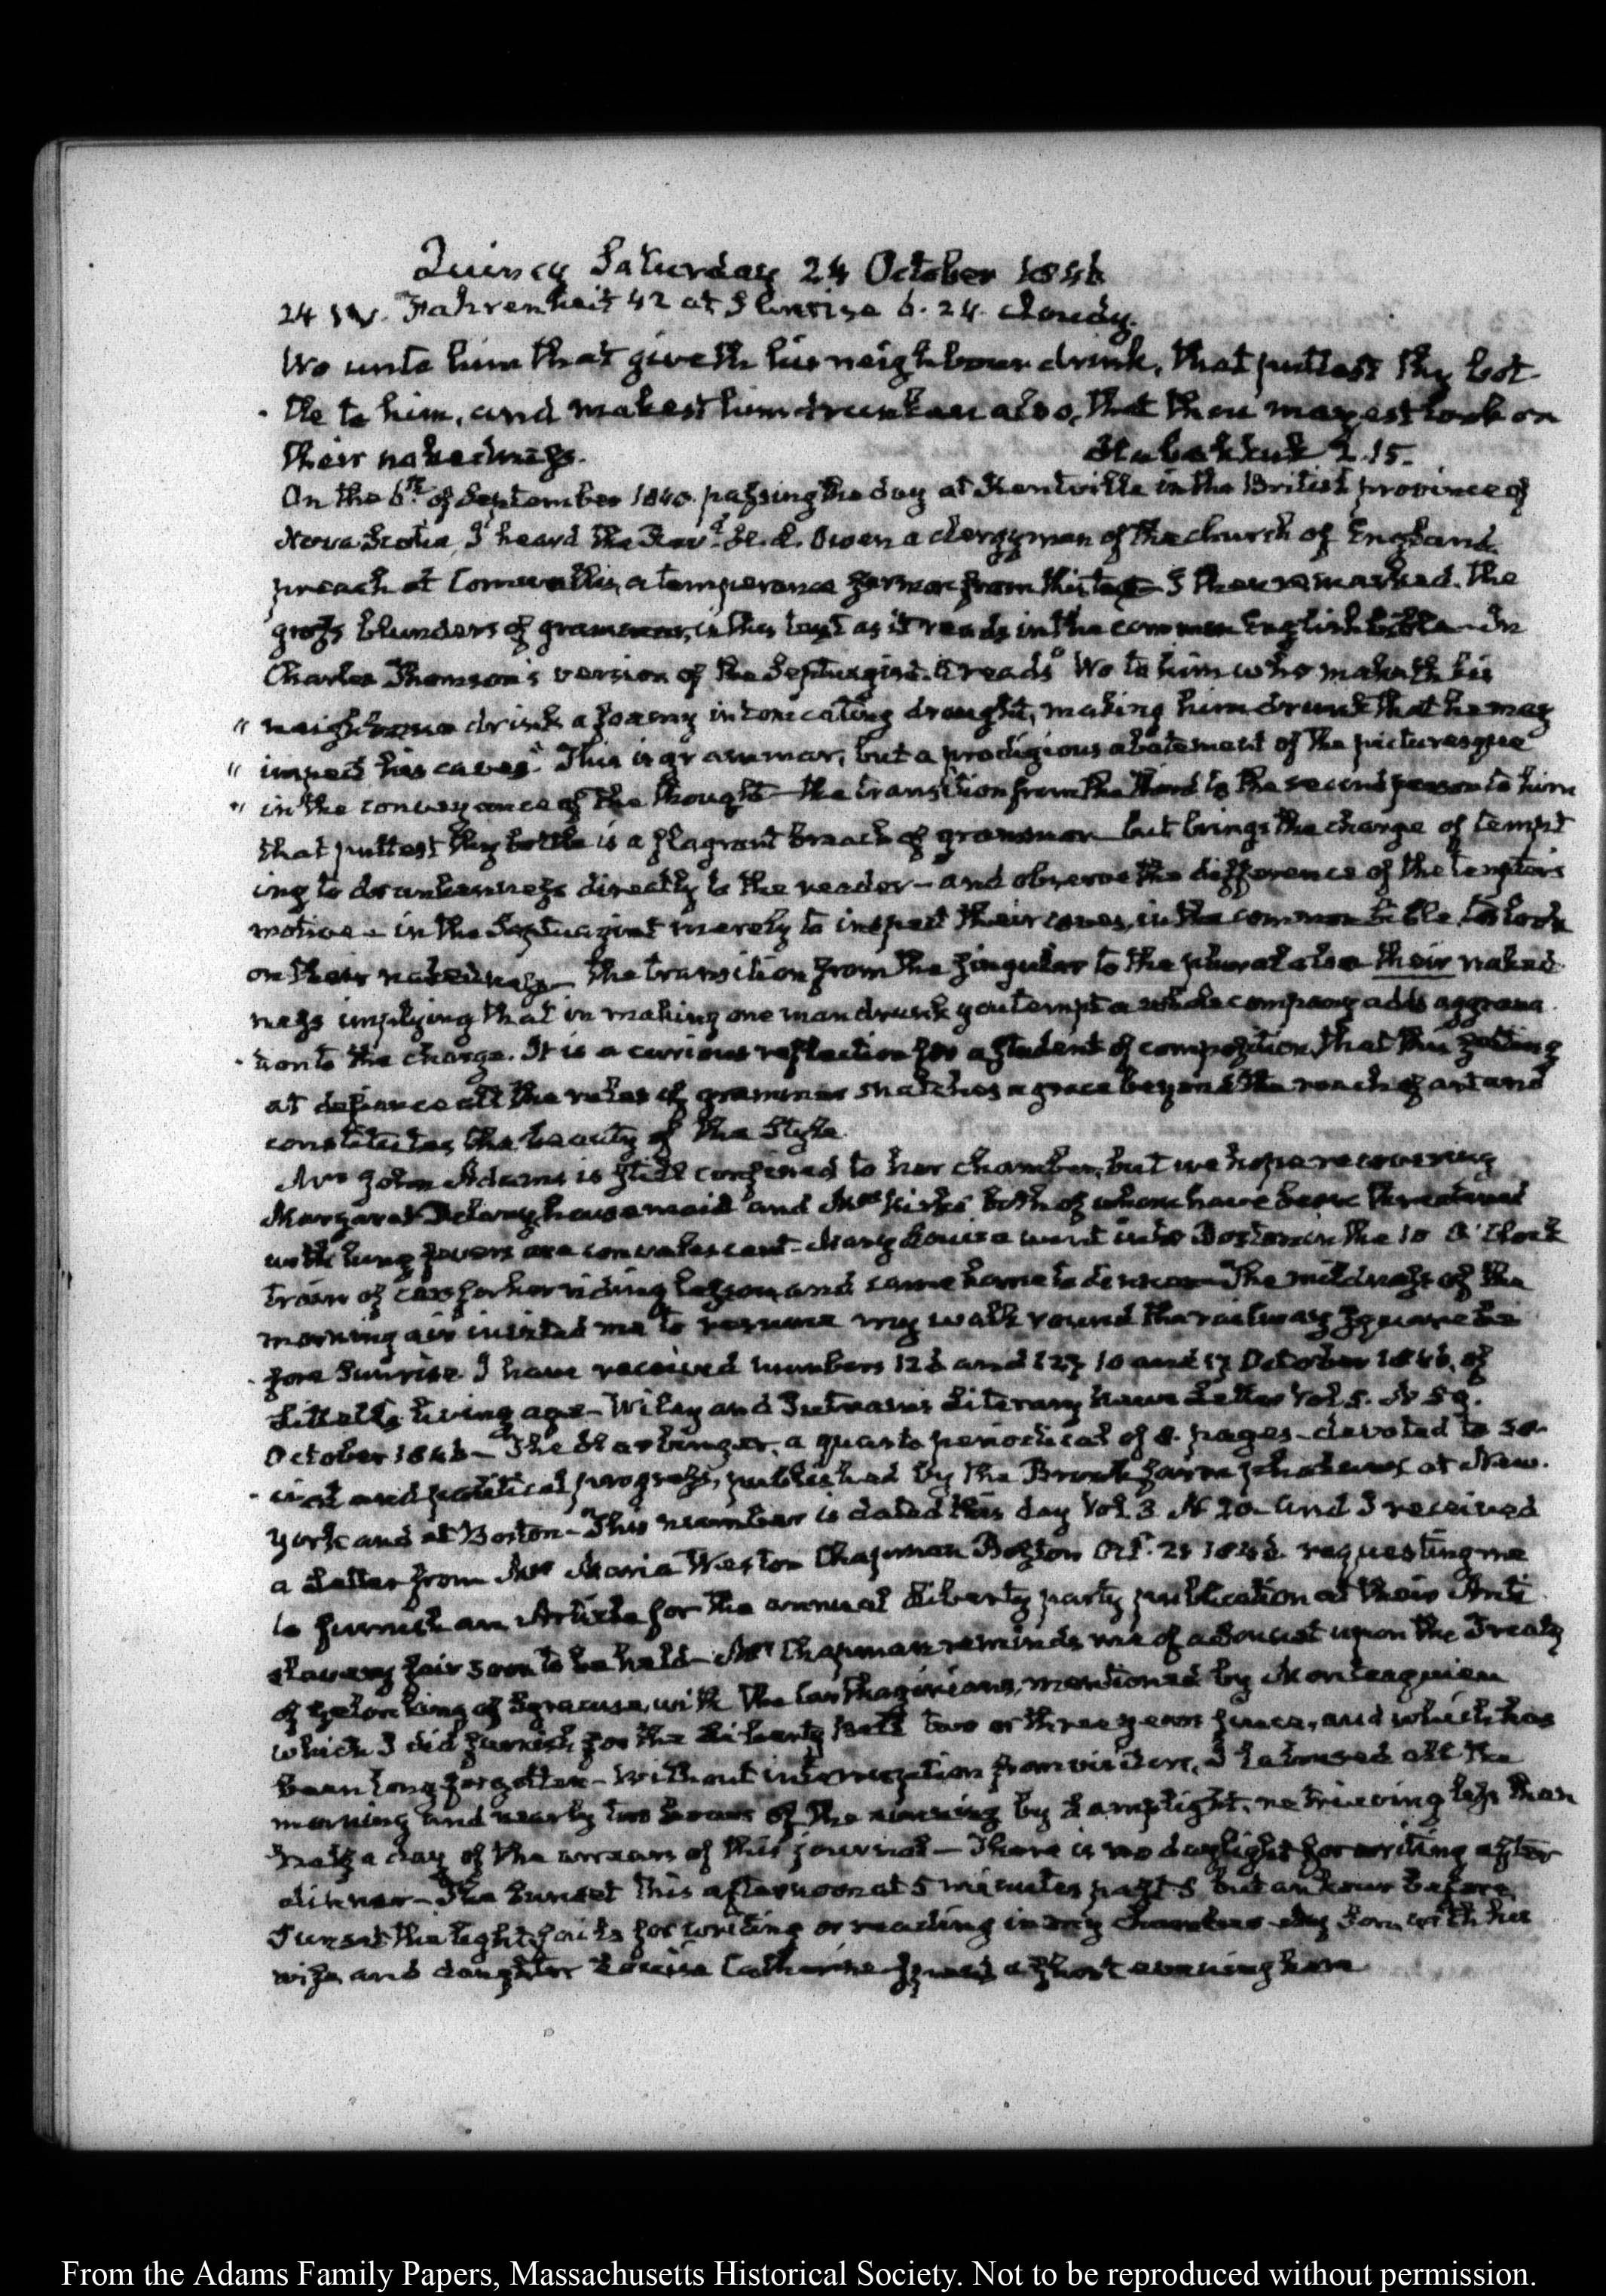 Quincy Saturday 24 October 1846
24 IV. Fahrenheit 42 at Sunrise 6.24. cloudy.
Wo unto him that giveth his neighbour drink, that puttest thy bot-
-tle to him, and makest him drunken also, that thou mayest look on
their nakedness. Habakkuk 2.15.
On the 6th of September 1840. passing the day at Kentville in the British province of
Nova Scotia, I heard the Revd. Owen a clergyman of the church of England
preach at Cornwallis, a temperance sermon from this text—I then remarked the
gross blunders of grammar, in this text as it reads in the common English bible—In
Charles Thomson's version of the Septuagint it reads "Wo to him who maketh his
" neighbour drink a foamy intoxicating draught, making him drunk that he may
" inspect his caves." This is grammar, but a prodigious abatement of the picturesque
" in the conveyance of the thought—the transition from the third to the second person to him
that puttest thy bottle is a flagrant breach of grammar but brings the charge of tempt
ing to drunkenness directly to the reader—and observe the difference of the tempters
motive—in the Septuagint merely to inspect their caves, in the common bible, to look
on their nakedness—The transition from the singular to the plural also their naked
ness implying that in making one man drunk you tempt a whole company adds aggrava
-tion to the charge. It is a curious reflection for a student of composition, that this setting
at defiance all the rules of grammar snatches a grace beyond the reach of art and
constitutes the beauty of the Style.
Mrs John Adams is still confined to her chamber, but we hope recovering
Margaret Delany housemaid and Mrs Kirke both of whom have been threatened
with lung fevers are convalescent—Mary Louisa went into Boston in the 10 O'Clock
train of cars for her riding lesson, and came home to dinner—The mildness of the
morning air invited me to resume my walk round the railway square be
-fore Sunrise. I have received numbers 126 and 127 10 and 17 October 1846. of
Littell's living age—Wiley and Putnam's Literary news Letter Vol. 5. N 59.
October 1846—The Harbinger, a quarto periodical of 8. pages—devoted to so-
-cial and political progress, published by the Brook farm phalanx at New.
York and at Boston—This number is dated this day Vol 3 N 20—and I received
a Letter from Mrs Maria Weston Chapman Boston Oct. 23 1846. requesting me
to furnish an Article for the annual Liberty party publication at their Anti
slavery fair soon to be held—Mrs Chapman reminds me of a Sonnet upon the Treaty
of Gelon king of Syracuse, with the Carthaginians, mentioned by Montesquieu
which I did furnish for the Liberty Bell two or three years since, and which has
been long forgotten—Without interruption from visitors, I laboured all the
morning and nearly two hours of the evening by Lamplight, retrieving less than
half a day of the arrears of this journal—There is no daylight for writing after
dinner—The Sunset this afternoon at 5 minutes past 5 but an hour before
Sunset the light fails for writing or reading in my chamber—My Son, with his
wife, and daughter Louisa Catherine passed a short evening here
From the Adams Family Papers, Massachusetts Historical Society. Not to be reproduced without permission.